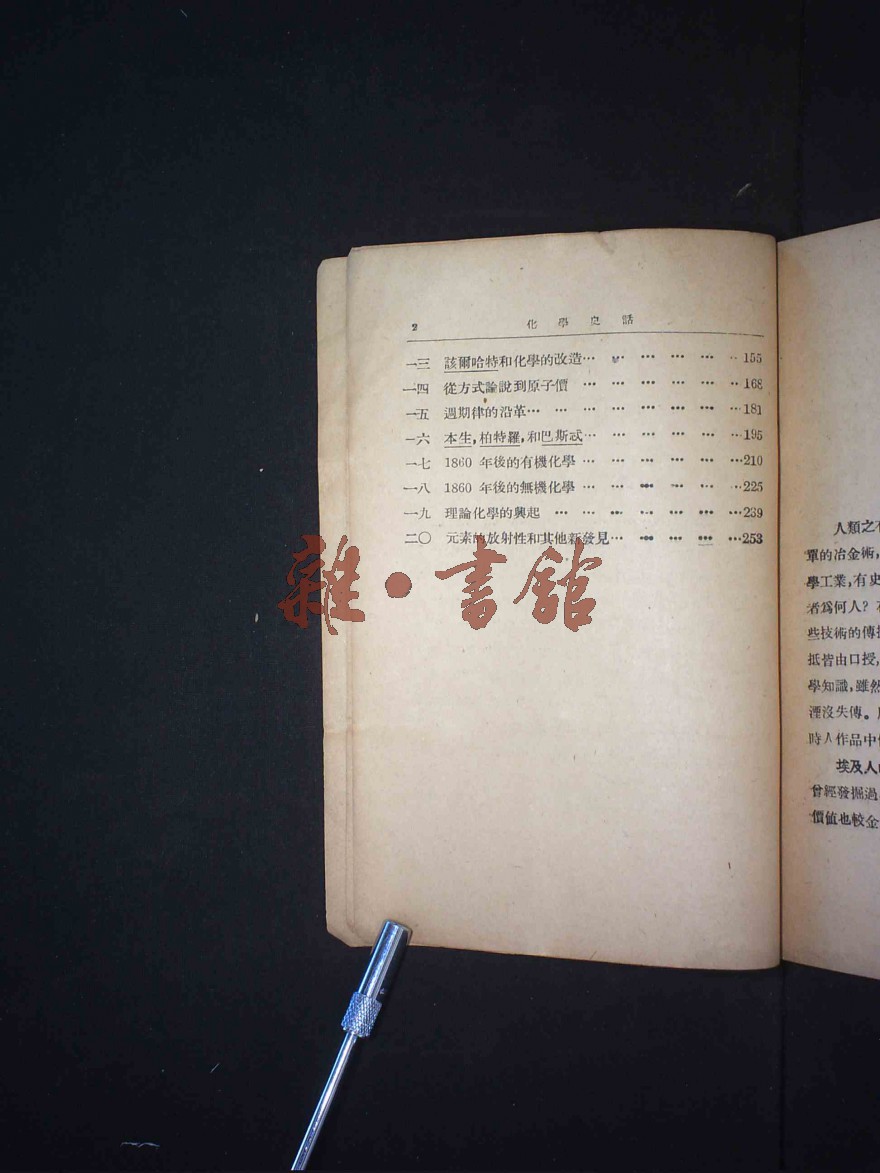 2 化學史話
一三 該爾哈特和化學的改造… … … … … …155
一四 從方式論說到原子價 … … … … … …168
一五 週期律的沿革… … … … … … …181
一六 本生,柏特羅,和巴斯忒… … … … … …195
一七 1860 年後的有機化學 … … … … … …210
一八 1860 年後的無機化學 … … … … … …225
一九 理論化學的興起 … … … … … … …239
二〇 元素的放射性和其他新發見… … … … …253
雜·書館
人類之
單的冶金術,
學工業,有史
者爲何人?
些技術的傳
抵皆由口授,
學知識,雖然
湮沒失傳。
時人作品中
埃及人
曾經發掘過
價值也較金